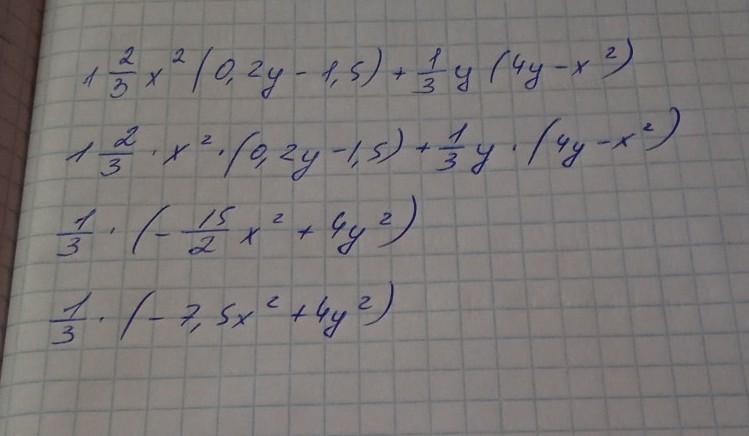 1 2/3 x² (0,2y - 1,5) + 1/3 y (4y - x²)
1 2/3 · x² · (0,2y - 1,5) + 1/3 y · (4y - x²)
1/3 · (- 15/2 x² + 4y²)
1/3 · (- 7,5x² + 4y²)